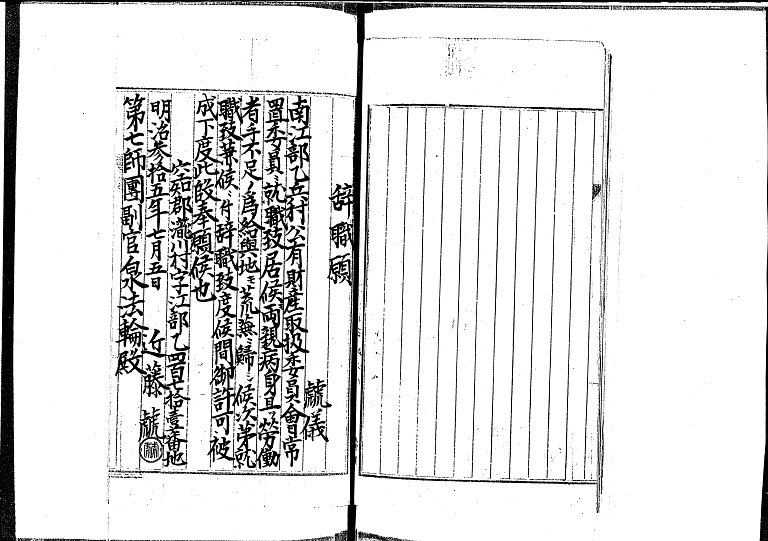 辞職願
虤儀
南江部乙兵村公有財産取扱委員會常
置委員ニ就職致居候両親病身且ツ労働
者手不足ノ為給與地モ荒蕪ニ歸シ候次第就
職致兼候ニ付辞職致度候間御許可被
成下度此段奉願候也
空知郡瀧川村字江部乙四百七拾壹番地
明治参拾五年七月五日　近藤　虤
第七師團副官泉法輪殿